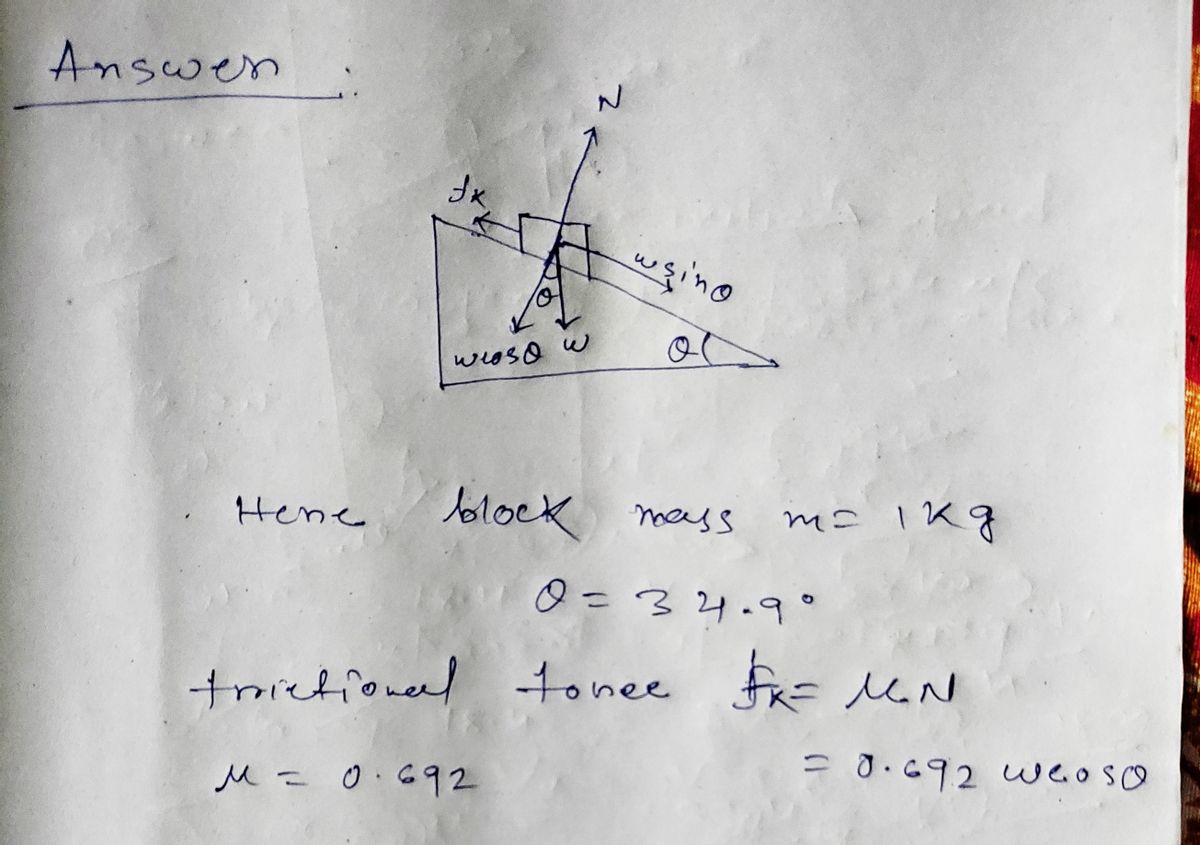 Answer :
N
fk
w sinθ
θ
wcosθ w
θ
Here block mass m = 1kg
θ = 34.9°
frictional force fk = μN
μ = 0.692
= 0.692 wcosθ